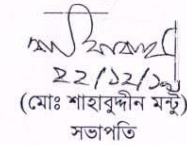 ২২/১২/১৯
(মোঃ শাহাবুদ্দীন মন্টু)
সভাপতি